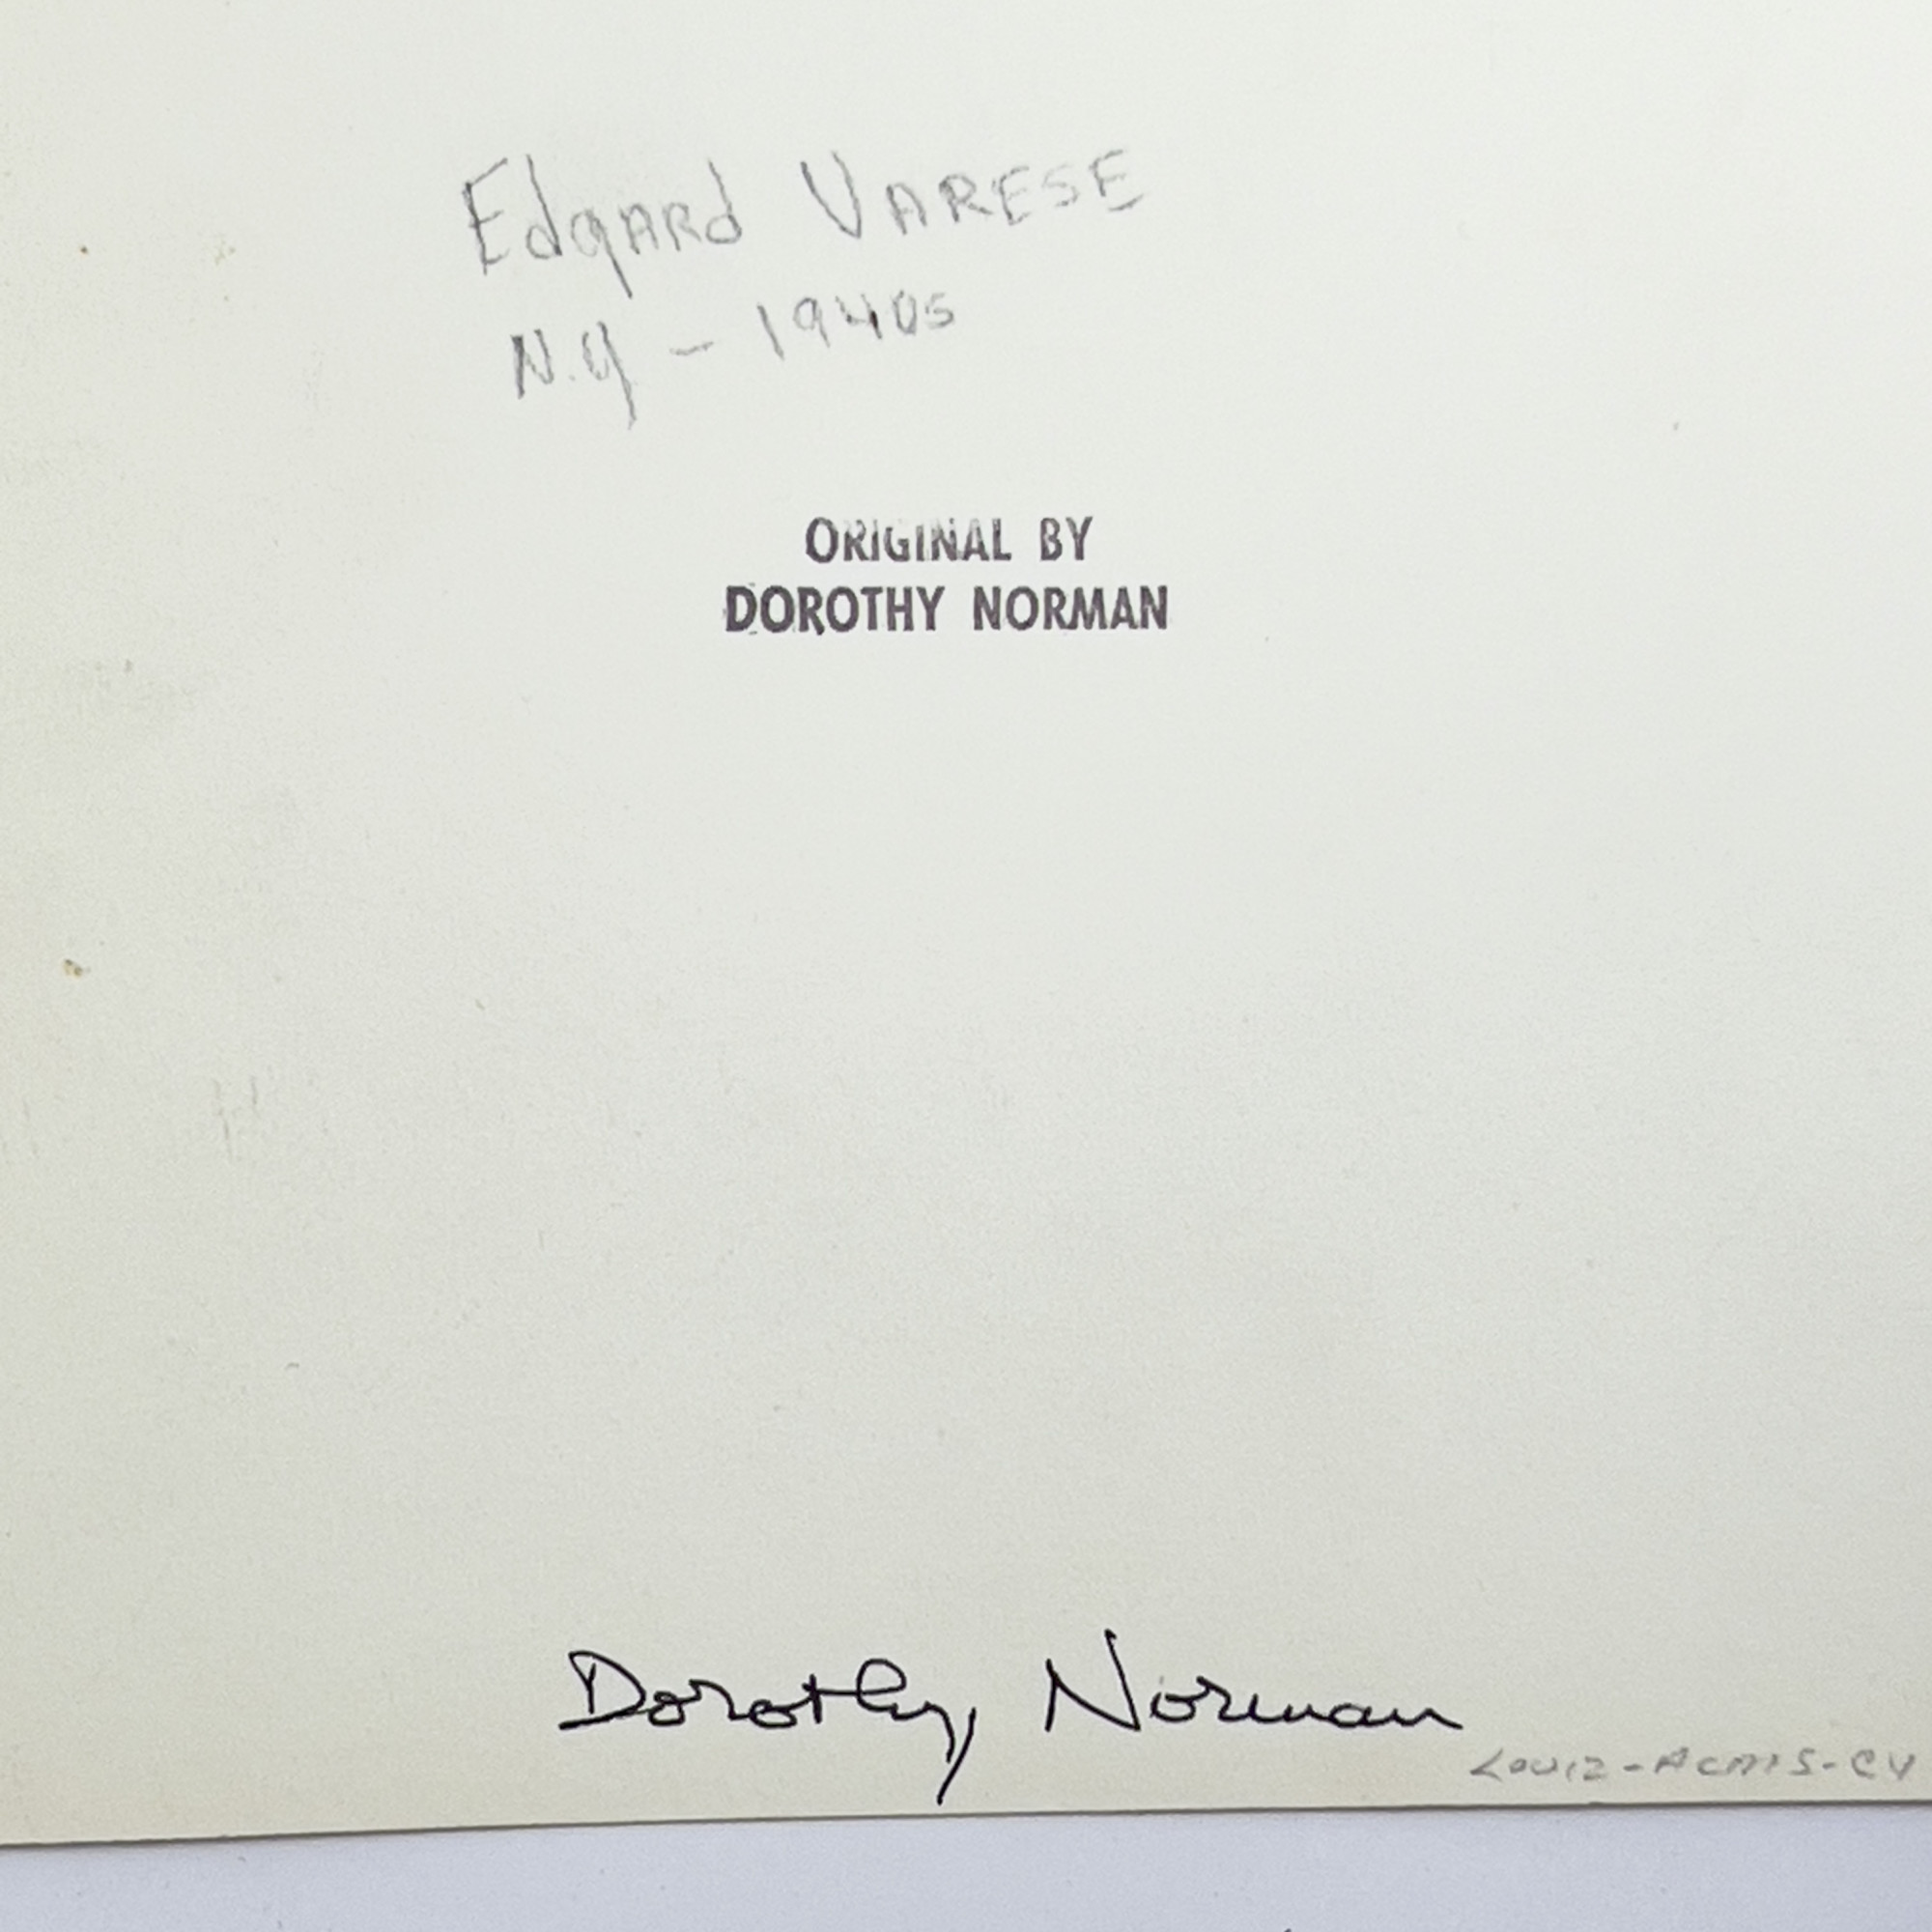 Edgard VARESE
N.Y - 1940s
ORIGINAL BY
DOROTHY NORMAN
Dorothy Norman